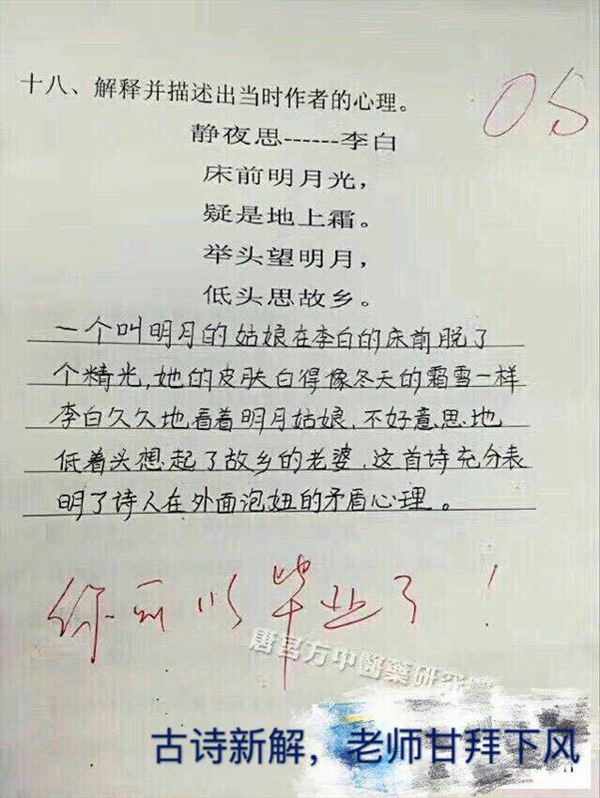 十八、解释并描述出当时作者的心理。
05
静夜思------李白
床前明月光，
疑是地上霜。
举头望明月，
低头思故乡。
一个叫明月的姑娘在李白的床前脱了
个精光，她的皮肤白得像冬天的霜雪一样
李白久久地看着明月姑娘，不好意思地
低着头想起了故乡的老婆，这首诗充分表
明了诗人在外面泡妞的矛盾心理。
你可以毕业了！
唐宫方中醫藥研
古诗新解，老师甘拜下风